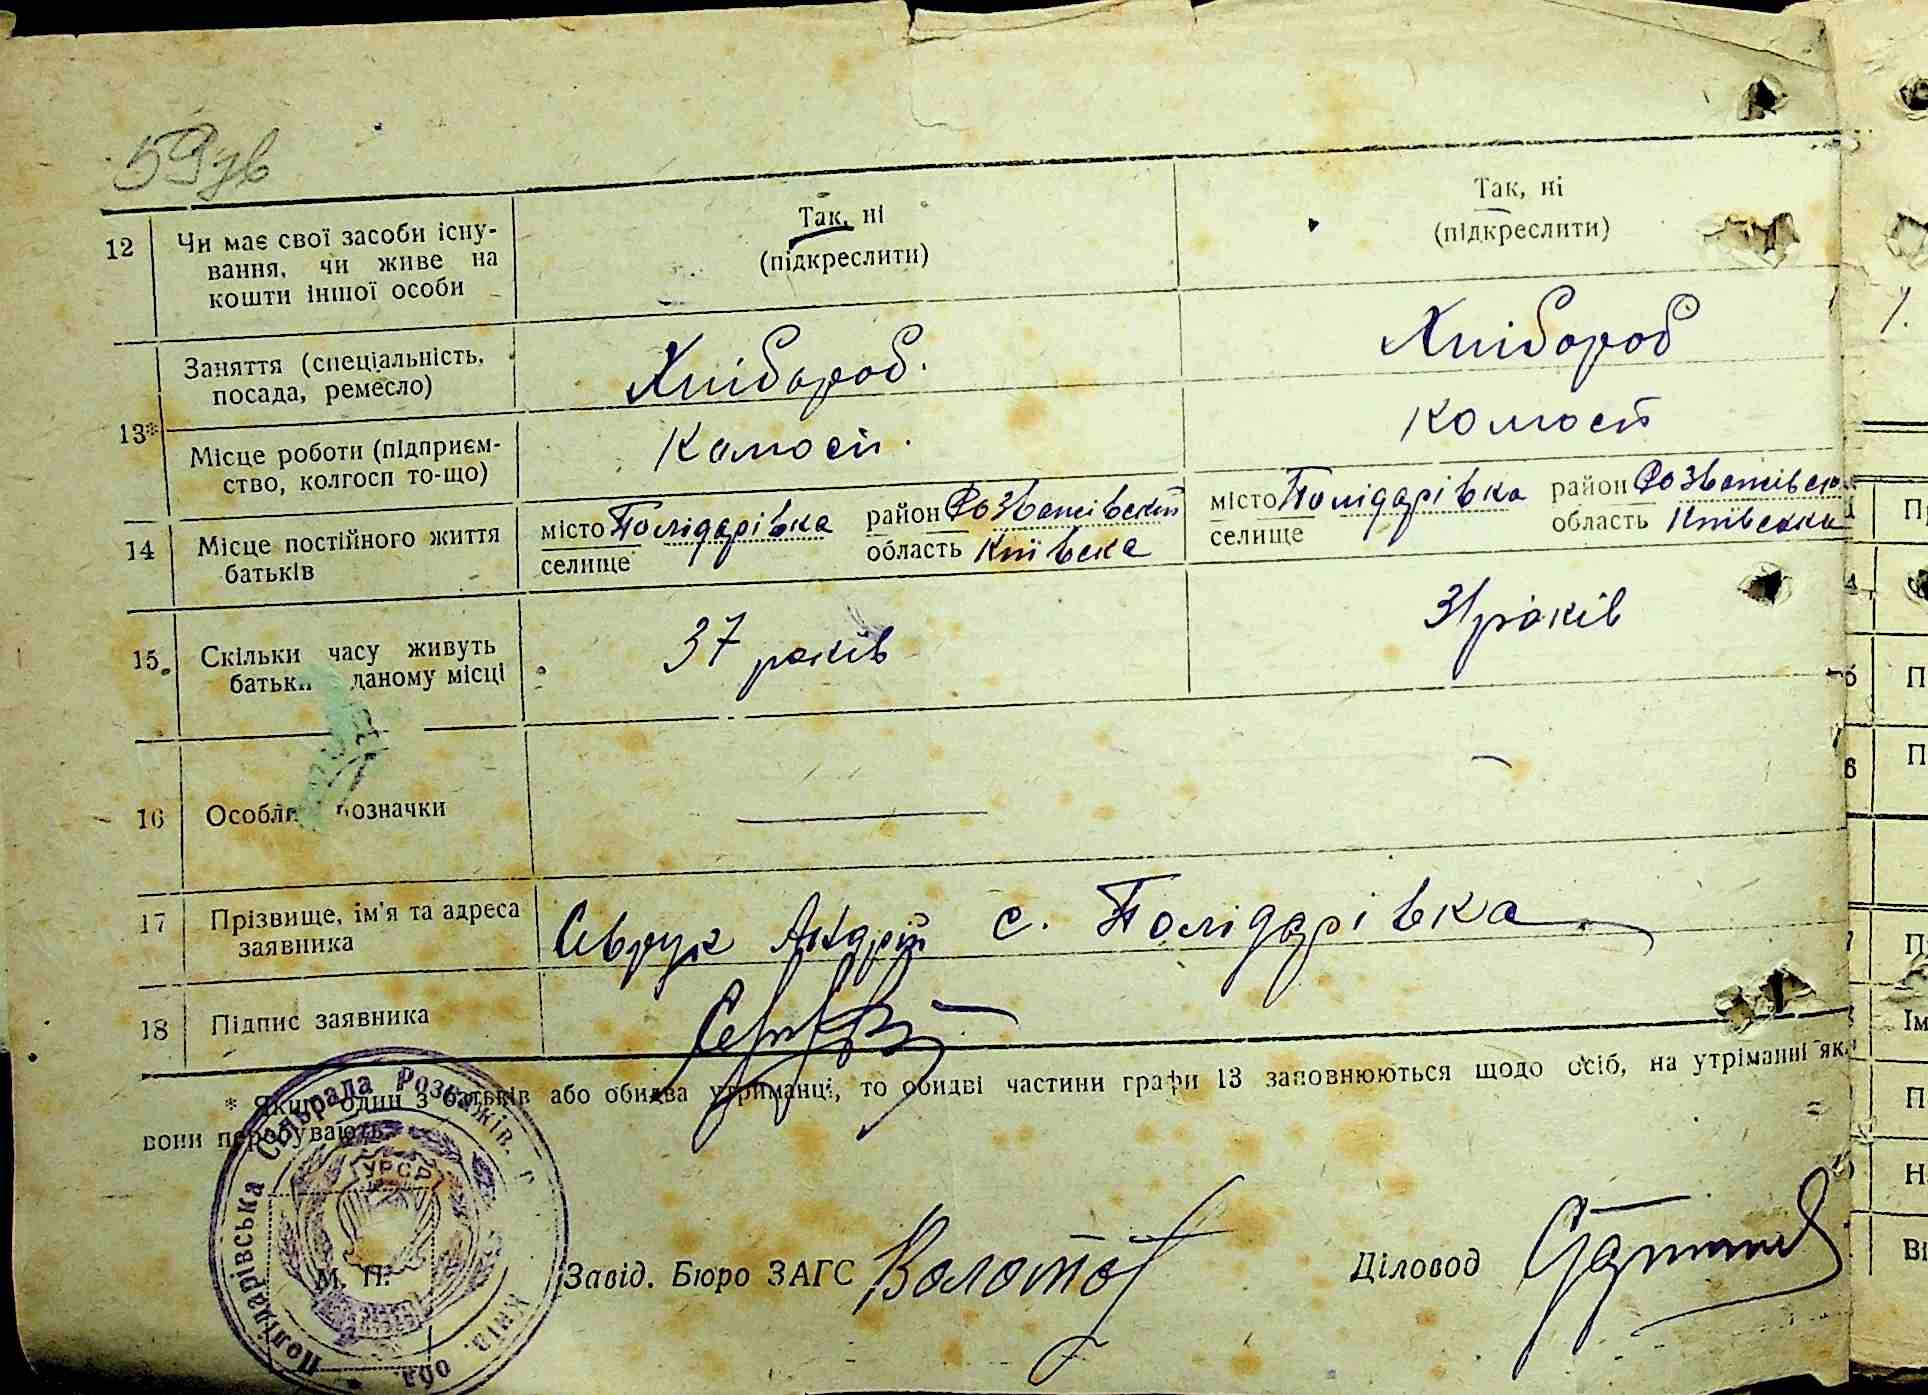 59зв
12 Чи має свої засоби існу-
вання, чи живе на
кошти іншої особи
Так, ні
(підкреслити)
Так, ні
(підкреслити)
13*
Заняття (спеціальність,
посада, ремесло)
Хлібороб.
Хлібороб
Місце роботи (підприєм-
ство, колгосп то-що)
Колгосп.
Колгосп
14 Місце постійного життя
батьків
місто Полідарівка район Розважівский
селище область Київска
місто Полідарівка район
селище область Київска
15 Скільки часу живуть
даному місці
37 років
31 років
16
означки
17 Прізвище, ім'я та адреса
заявника
Севрук Андрій с. Полідарівка
18 Підпис заявника
* Якщо один з батьків або обидва утриманці, то обидві частини графи 13 заповнюються щодо осіб, на утріманні як
вони перебувають.
Полідарівська Сільрада Розважів. р.
Київ. обл.
УРСР
М. П.
Завід. Бюро ЗАГС
Діловод